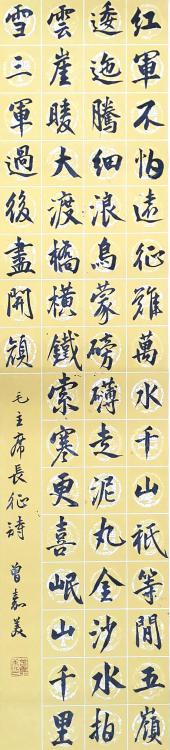 紅軍不怕遠征難萬水千山祇等間五嶺
逶迤騰細浪烏蒙磅礴走泥丸金沙水拍
雲崖暖大渡橋橫鐵索寒更喜岷山千里
雪三軍過後盡開顏
毛主席長征詩 曾嘉美